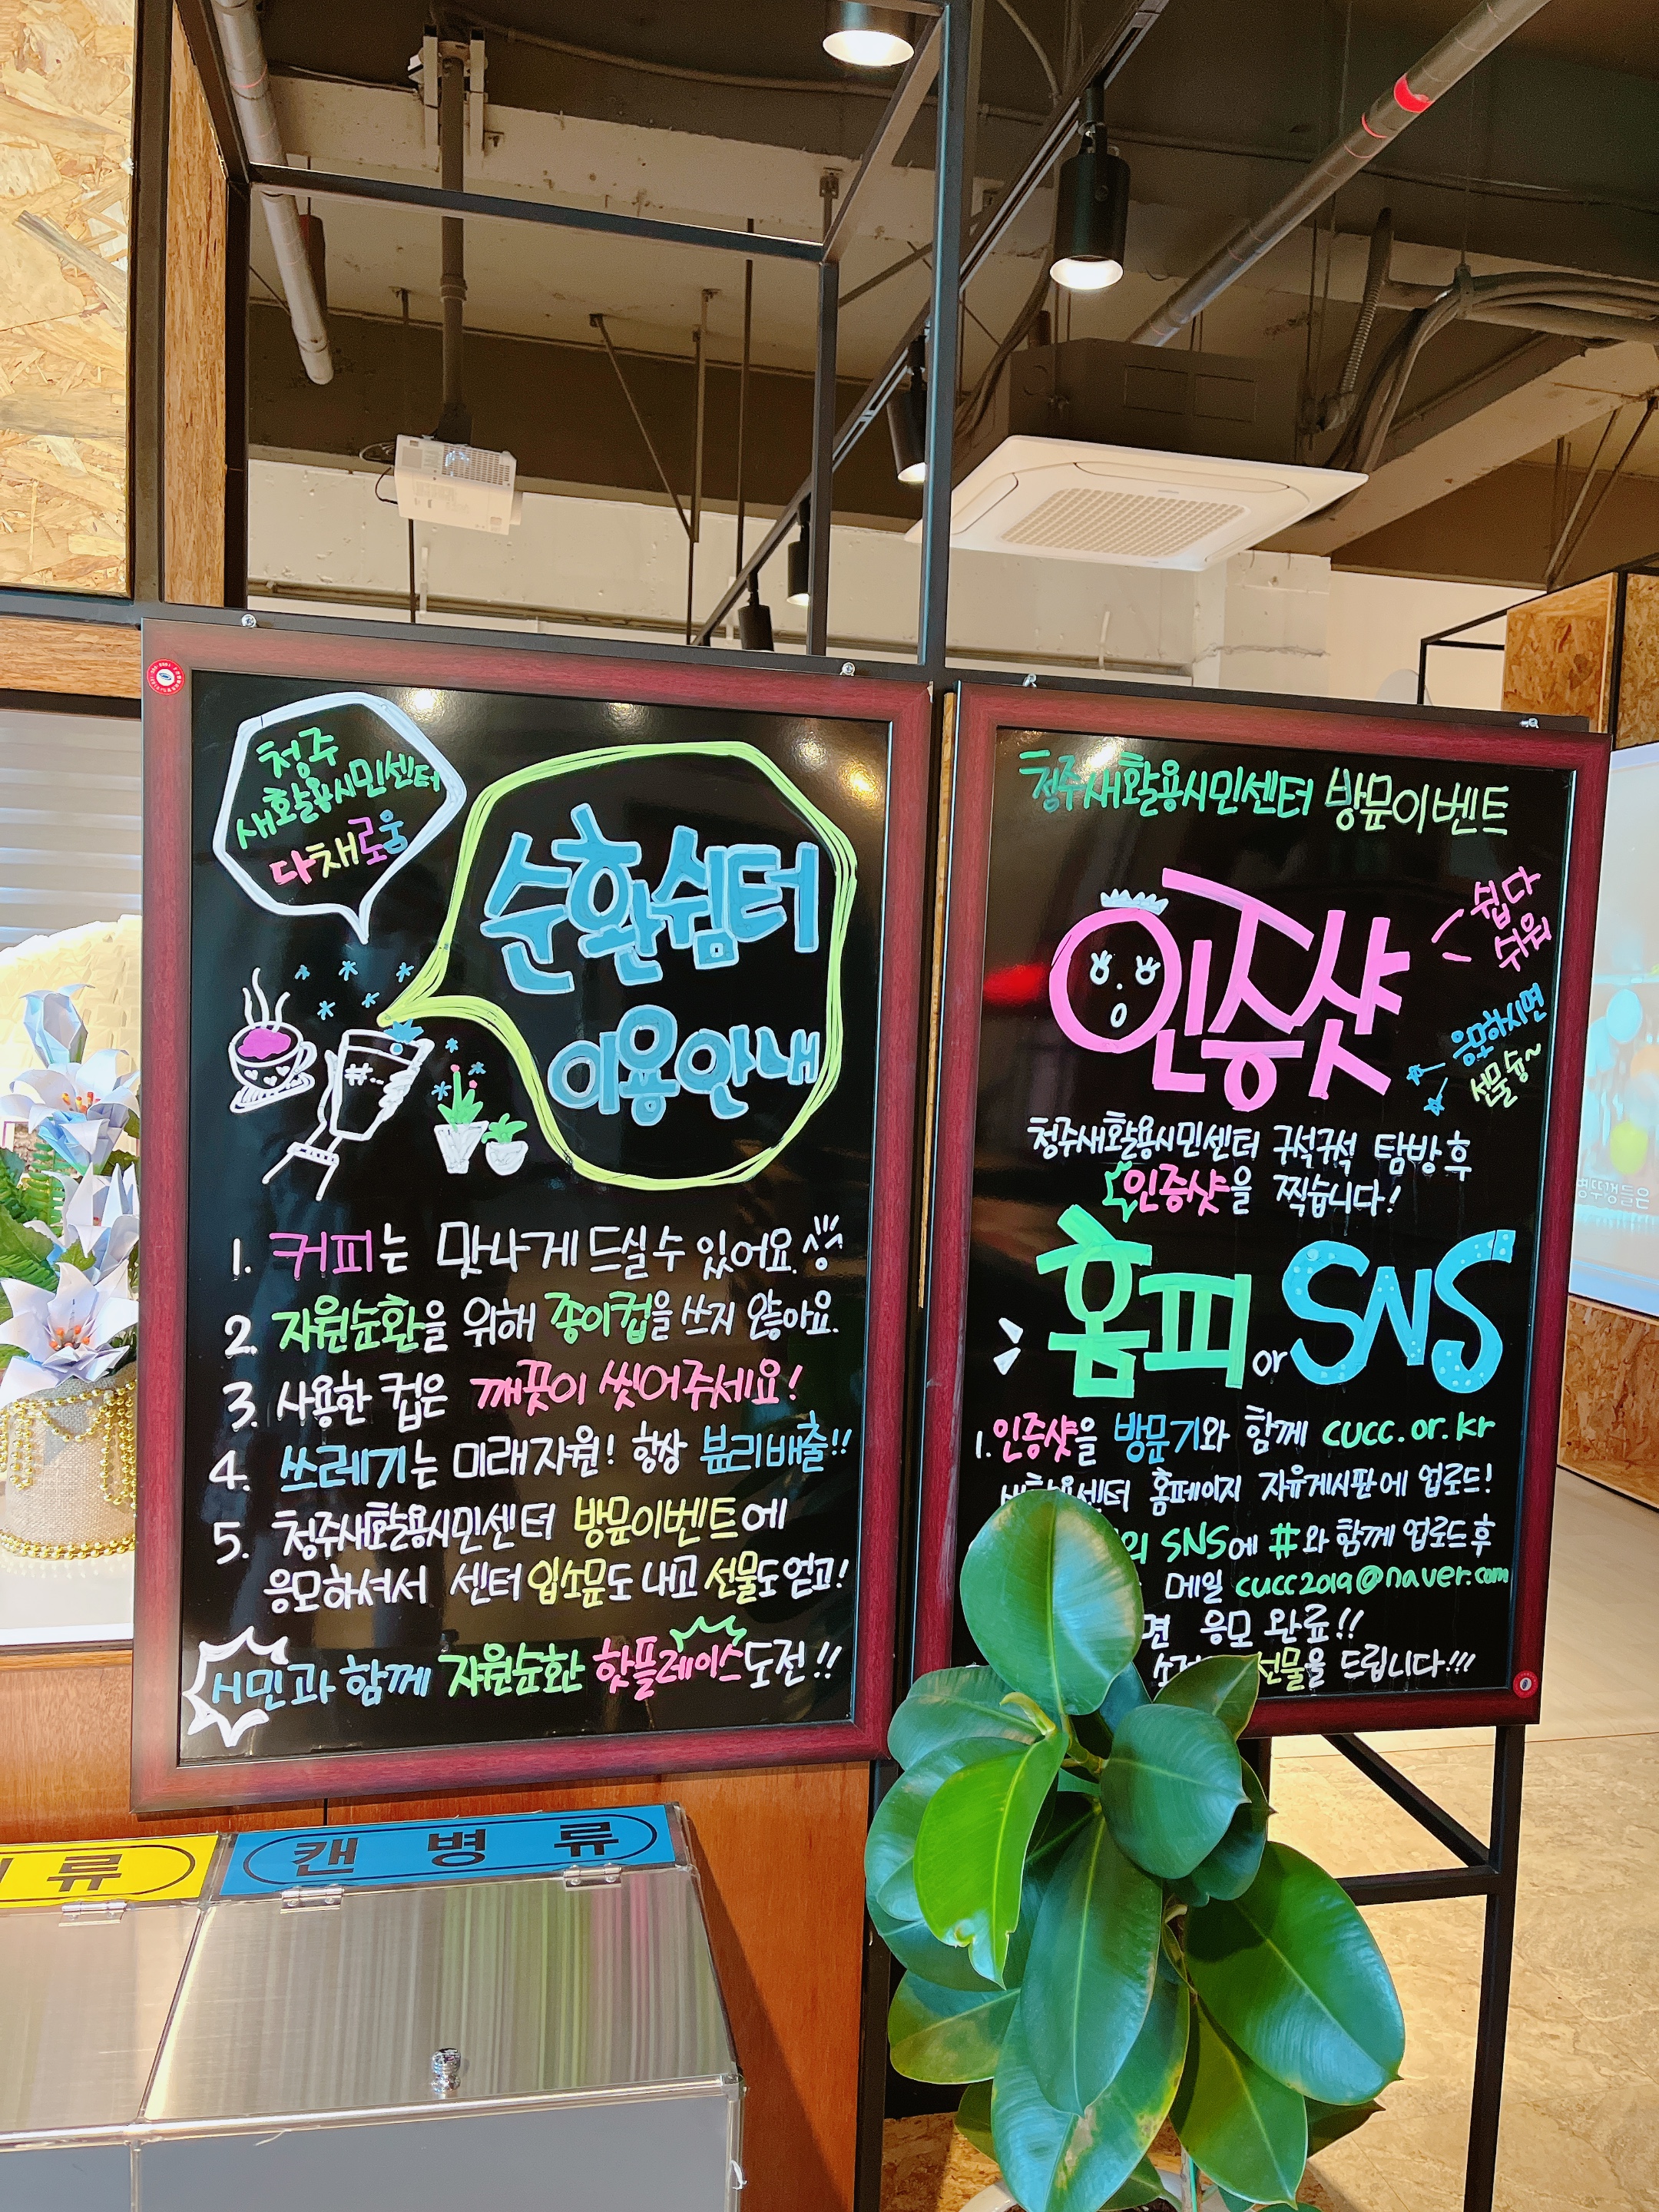 청주
새활용시민센터
다채로움
순환쉼터
이용안내
#
1. 커피는 맛나게 드실 수 있어요.
2. 자원순환을 위해 종이컵을 쓰지 않아요.
3. 사용한 컵은 깨끗이 씻어주세요!
4. 쓰레기는 미래자원! 항상 뷴리배출!!
5. 청주새활용시민센터 방문이벤트에
응모하셔서 센터 입소문도 내고 선물도 얻고!
시민과 함께 자원순환 핫플레이스 도전!!
청주새활용시민센터 방문이벤트
인증샷
쉽다
쉬워
응모하시면
선물 슝~
청주새활용시민센터 구석구석 탐방 후
인증샷을 찍습니다!
홈피 or SNS
1. 인증샷을 방문기와 함께 cucc.or.kr
새활용센터 홈페이지 자유게시판에 업로드!
의 SNS에 #와 함께 업로드 후
메일 cucc2019@naver.com
면 응모 완료!!
선물을 드립니다!!!
류
캔 병 류